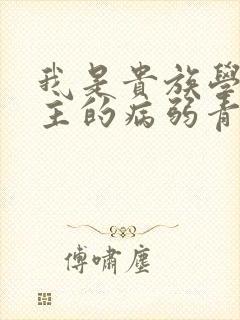 我是貴族學
主的病弱青
傅嘯塵